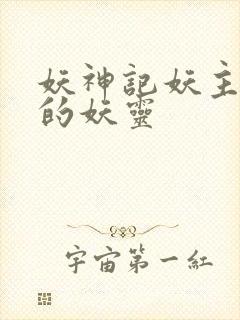 妖神記妖主
的妖靈
宇宙第一紅